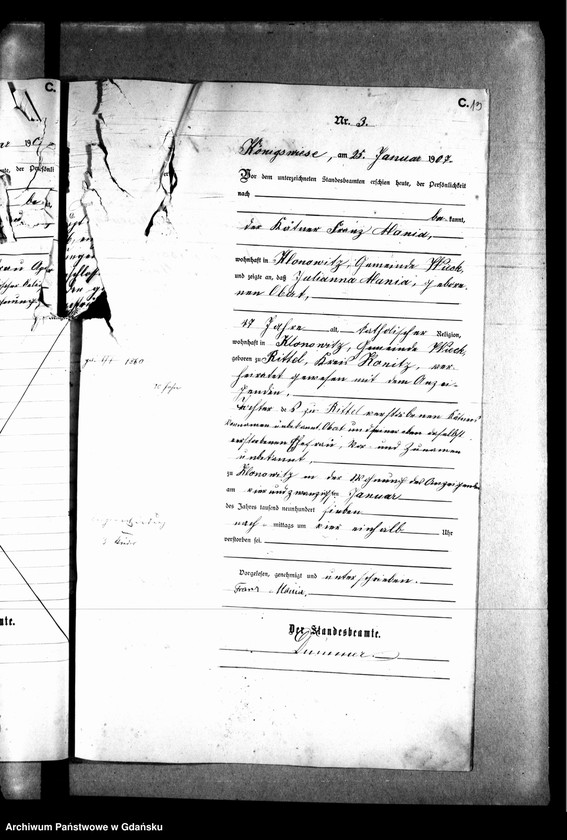 C.
C. 13
Nr. 3.
Königswiese, am 25. Januar 1907.
Vor dem unterzeichneten Standesbeamten erschien heute, der Persönlichkeit
nach
be kannt,
der Kätner Franz Mania,
wohnhaft in Klonowitz, Gemeinde Wieck,
und zeigte an, daß Julianna Mania, gebore-
nen Obst,
47 Jahre alt, katholischer Religion,
wohnhaft in Klonowitz, Gemeinde Wieck,
geboren zu Rittel, Kreis Konitz, ver-
heiratet gewesen mit dem Anzei-
genden,
Tochter des zu Rittel verstorbenen Kätners
Vornamen unbekannt Obst und seiner eben daselbst
verstorbenen Ehefrau, Vor- und Zunamen
unbekannt,
zu Klonowitz in der Wohnung des Anzeigenden
am vierundzwanzigsten Januar
des Jahres tausend neunhundert sieben
nach mittags um vier einhalb Uhr
verstorben sei.
Vorgelesen, genehmigt und unterschrieben.
Franz Mania,
Der Standesbeamte.
der Persönli
1860
Archiwum Państwowe w Gdańsku